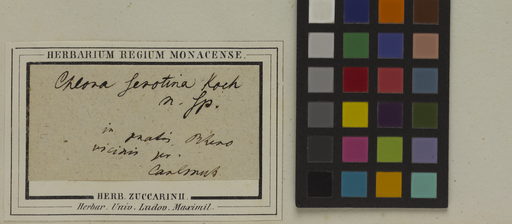 HERBARIUM REGIUM MONACENSE.
Chlora serotina Koch
n. sp.
in pratis Rheno
vicinis pr.
Carlsruh
HERB. ZUCCARINII.
Herbar. Univ. Ludov. Maximil.